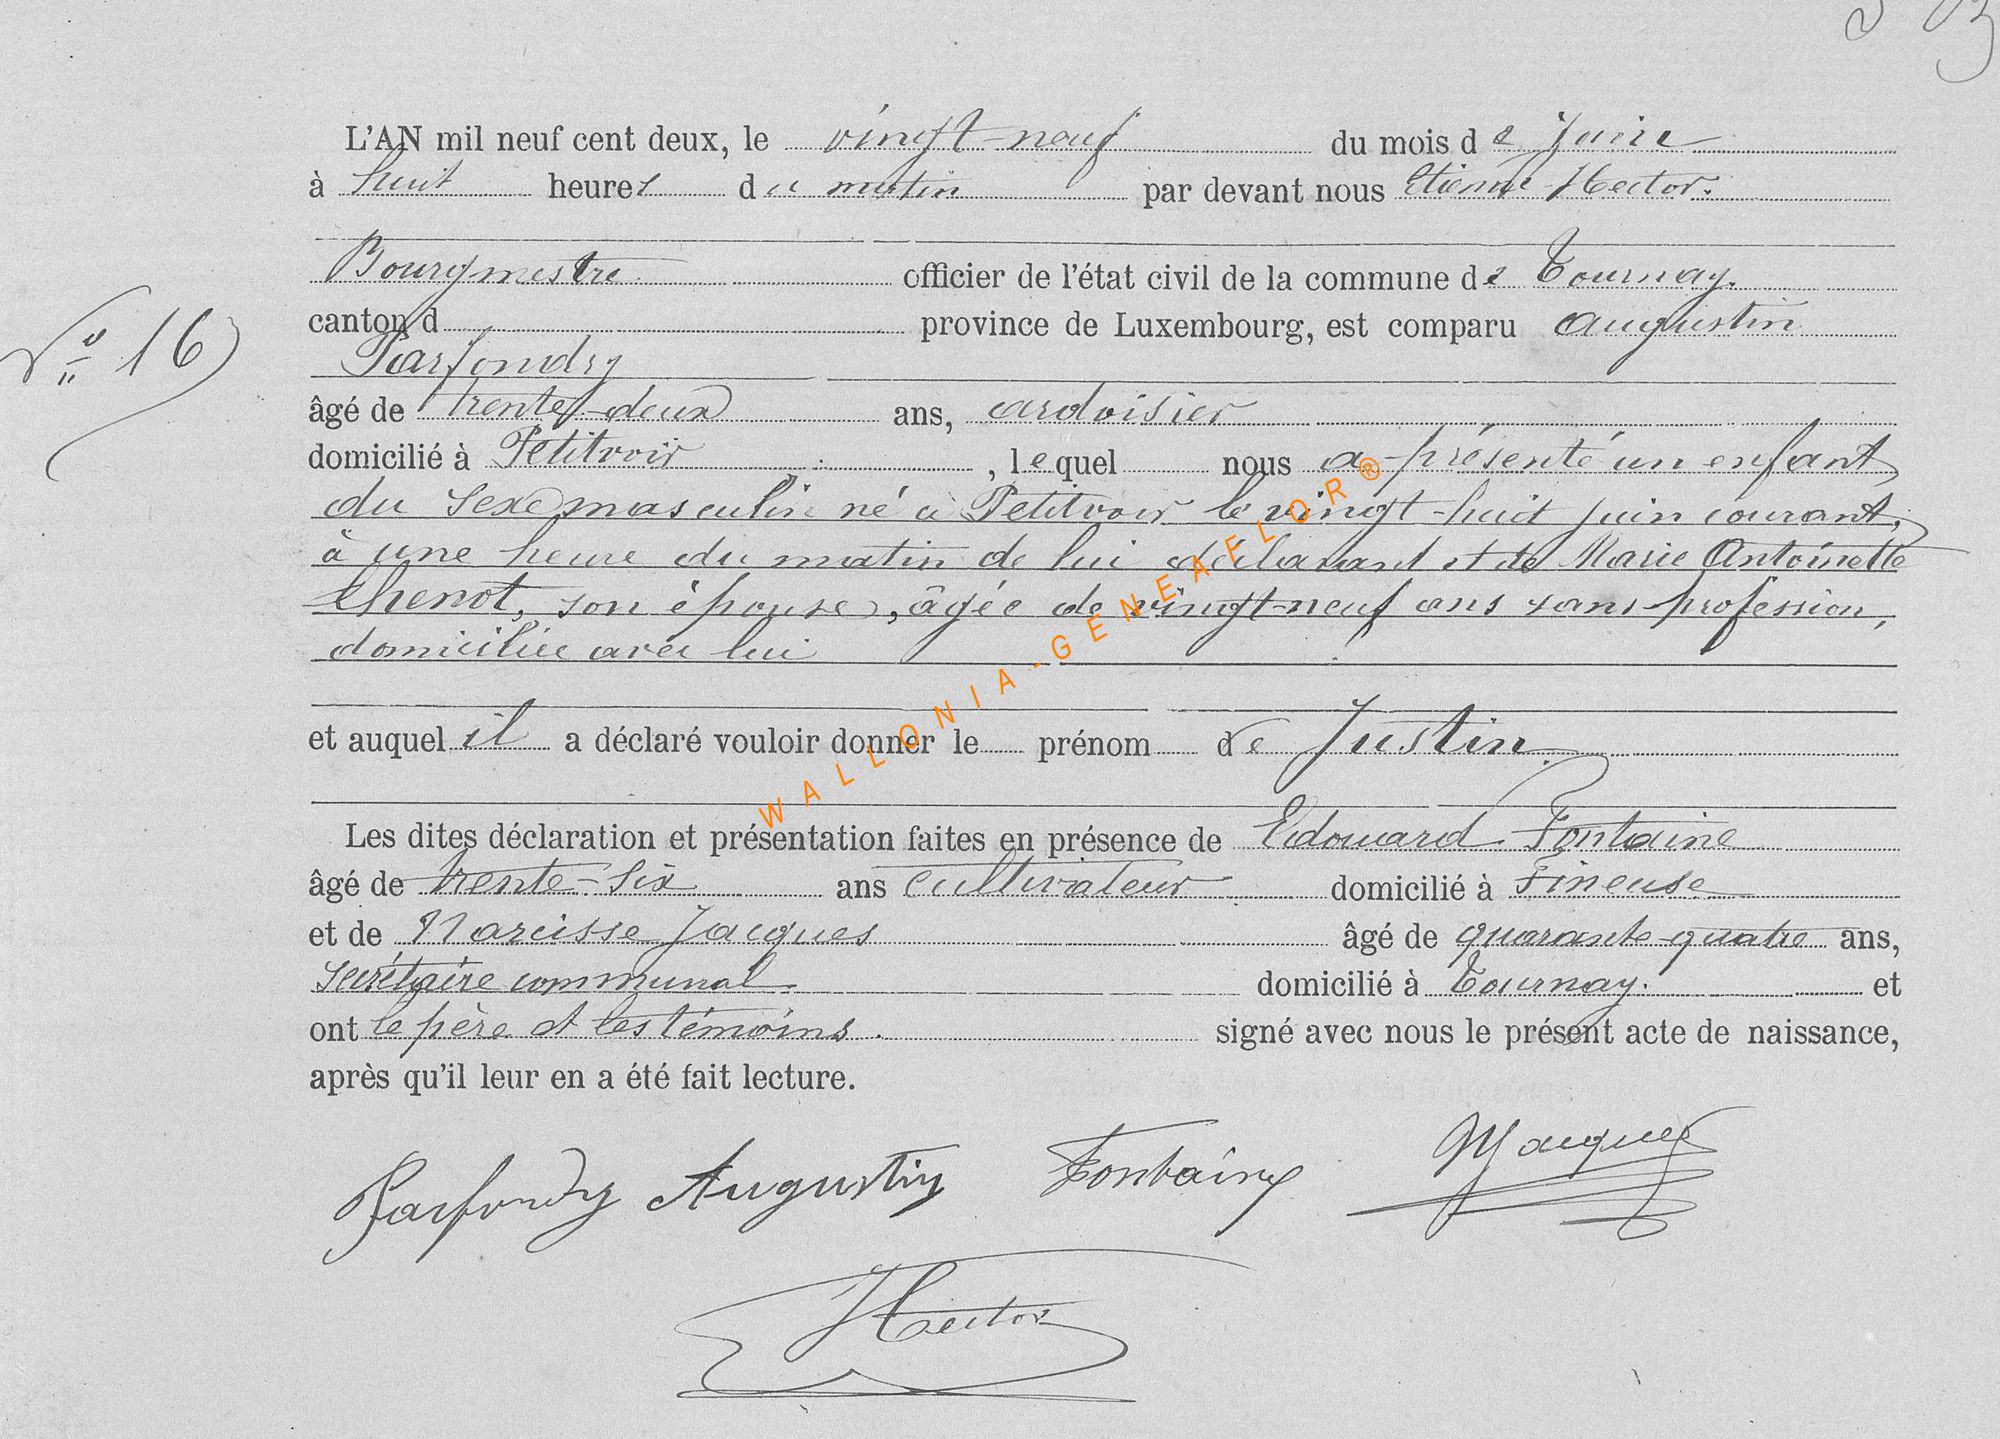 L'AN mil neuf cent deux, le vingt-neuf du mois de juin
à huit heures du matin par devant nous Etienne Hector.
Bourgmestre officier de l'état civil de la commune de Tournay.
canton d province de Luxembourg, est comparu Augustin
N° 16
Parfondry
âgé de trente-deux ans, ardoisier
domicilié à Petitvoir , lequel nous a présenté un enfant
du sexe masculin né à Petitvoir le vingt-huit juin courant,
à une heure du matin de lui déclarant et de Marie Antoinette
Thenot, son épouse, âgée de vingt-neuf ans sans profession,
domiciliée avec lui
et auquel il a déclaré vouloir donner le prénom de Justin.
Les dites déclaration et présentation faites en présence de Edouard Fontaine
âgé de trente-six ans cultivateur domicilié à Fineuse
et de Narcisse Jacques âgé de quarante-quatre ans,
secrétaire communal domicilié à Tournay. et
ont le père et les témoins. signé avec nous le présent acte de naissance,
après qu'il leur en a été fait lecture.
Parfondry Augustin Fontaine NJacques
Hector
WALLONIA-GENEAFLOR®